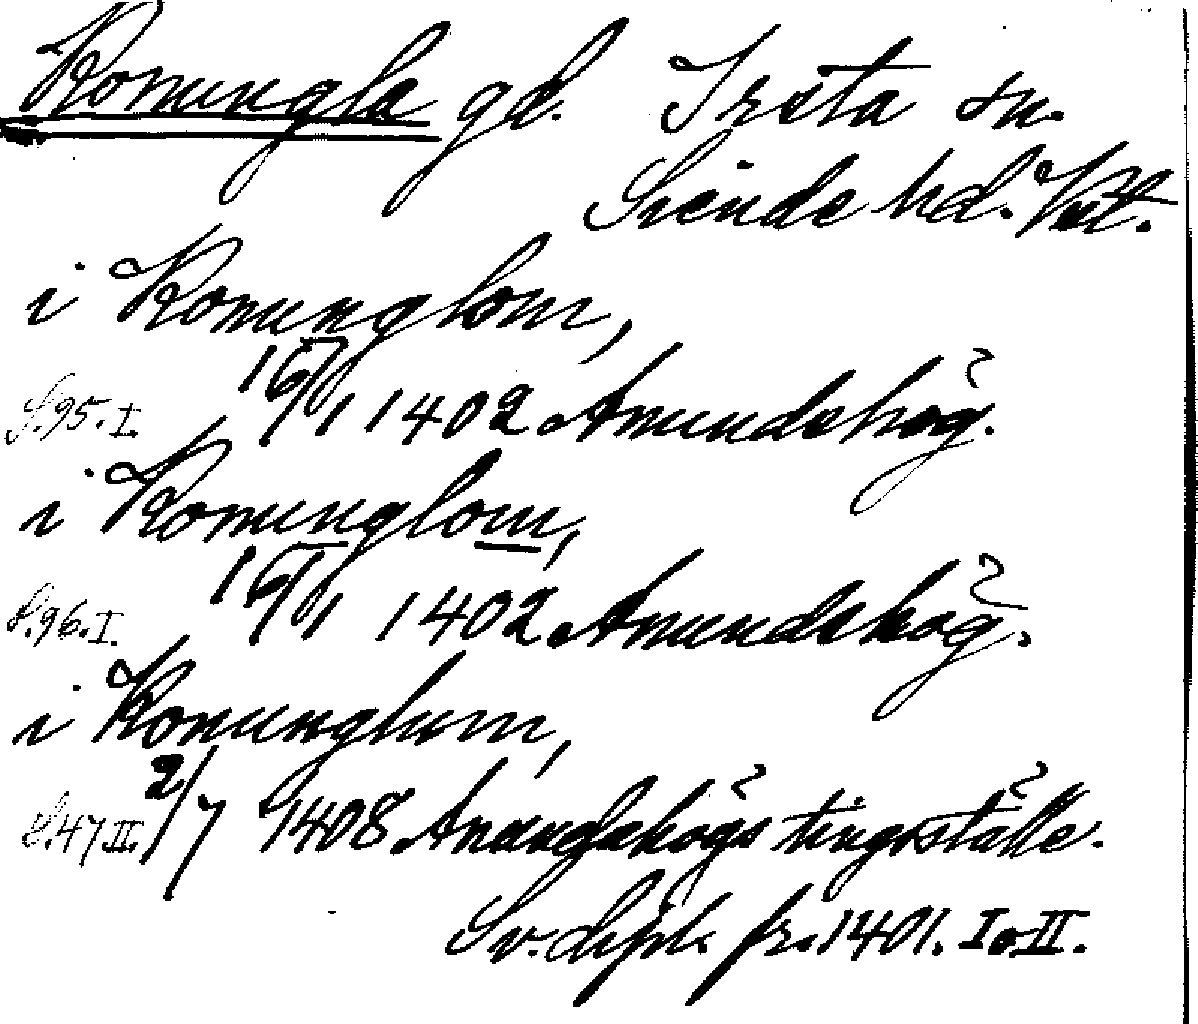 Konungla gd. Irsta sn.
Siende hd. Vstm.
i Konunglom,
S.95.I. 16/1 1402 Amundshög.
i Konunglom,
S.96.I. 16/1 1402 Amundshög.
i Konunglum,
S.47.II. 2/7 1408 Anundahögs tingställe.
Sv. dipl. fr. 1401. I o. II.